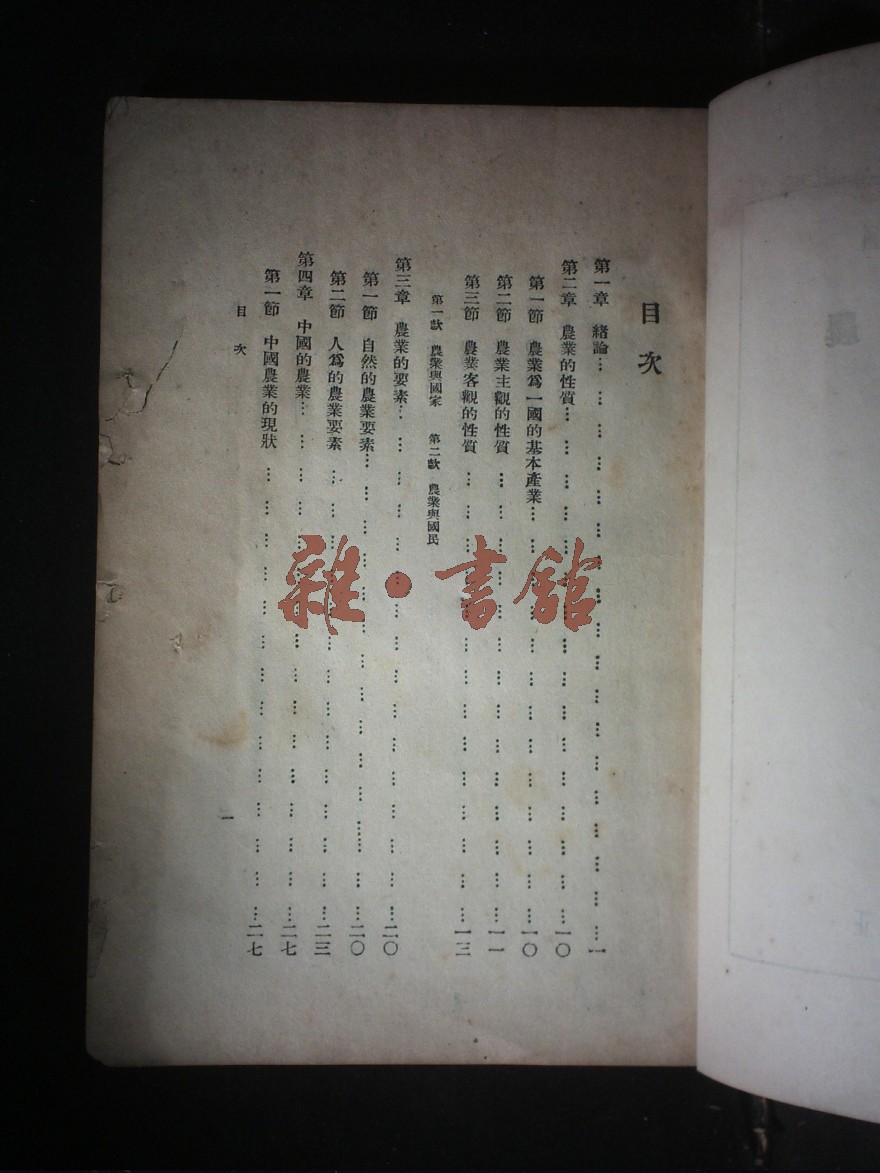 目次
第一章 緒論………………………………………………一
第二章 農業的性質………………………………………………一〇
第一節 農業爲一國的基本產業………………………………………一〇
第二節 農業主觀的性質………………………………………一一
第三節 農業客觀的性質………………………………………一三
第一款 農業與國家 第二款 農業與國民
第三章 農業的要素………………………………………………二〇
第一節 自然的農業要素………………………………………二〇
第二節 人爲的農業要素………………………………………二三
第四章 中國的農業………………………………………………二七
第一節 中國農業的現狀………………………………………二七
目次
一
雜·書館
農
正